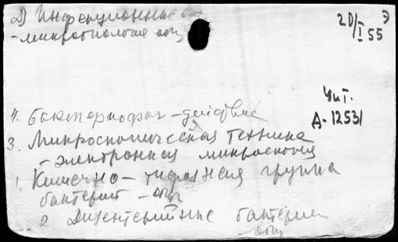 2) Инфекционные
- микробиология общ
20/I 55
Э
Чит.
Д-12531
4. бактериофаг - действие
3. Микроскопическая техника
- электронная микроскопия
1. Кишечно-тифозная группа
бактерий - общ
2 Дизентерийные бактерии
общ